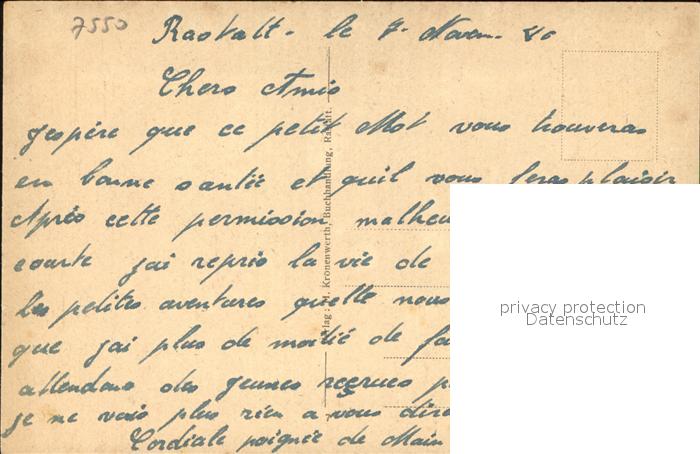 7550
Rastatt - le 7 - Novem -
Chers Amis
J'espère que ce petit Mot vous trouveras
en bonne santée et quil vous feras plaisir
Après cette permission malheu
courte j'ai repris la vie de
les petites aventures quelle nous
que j'ai plus de moitié de
attendons des jeunes reçrues
je ne vois plus rien a vous dire
Cordiale poignée de Main
Verlag: H. Kronenwerth, Buchhandlung, Rastatt.
privacy protection
Datenschutz